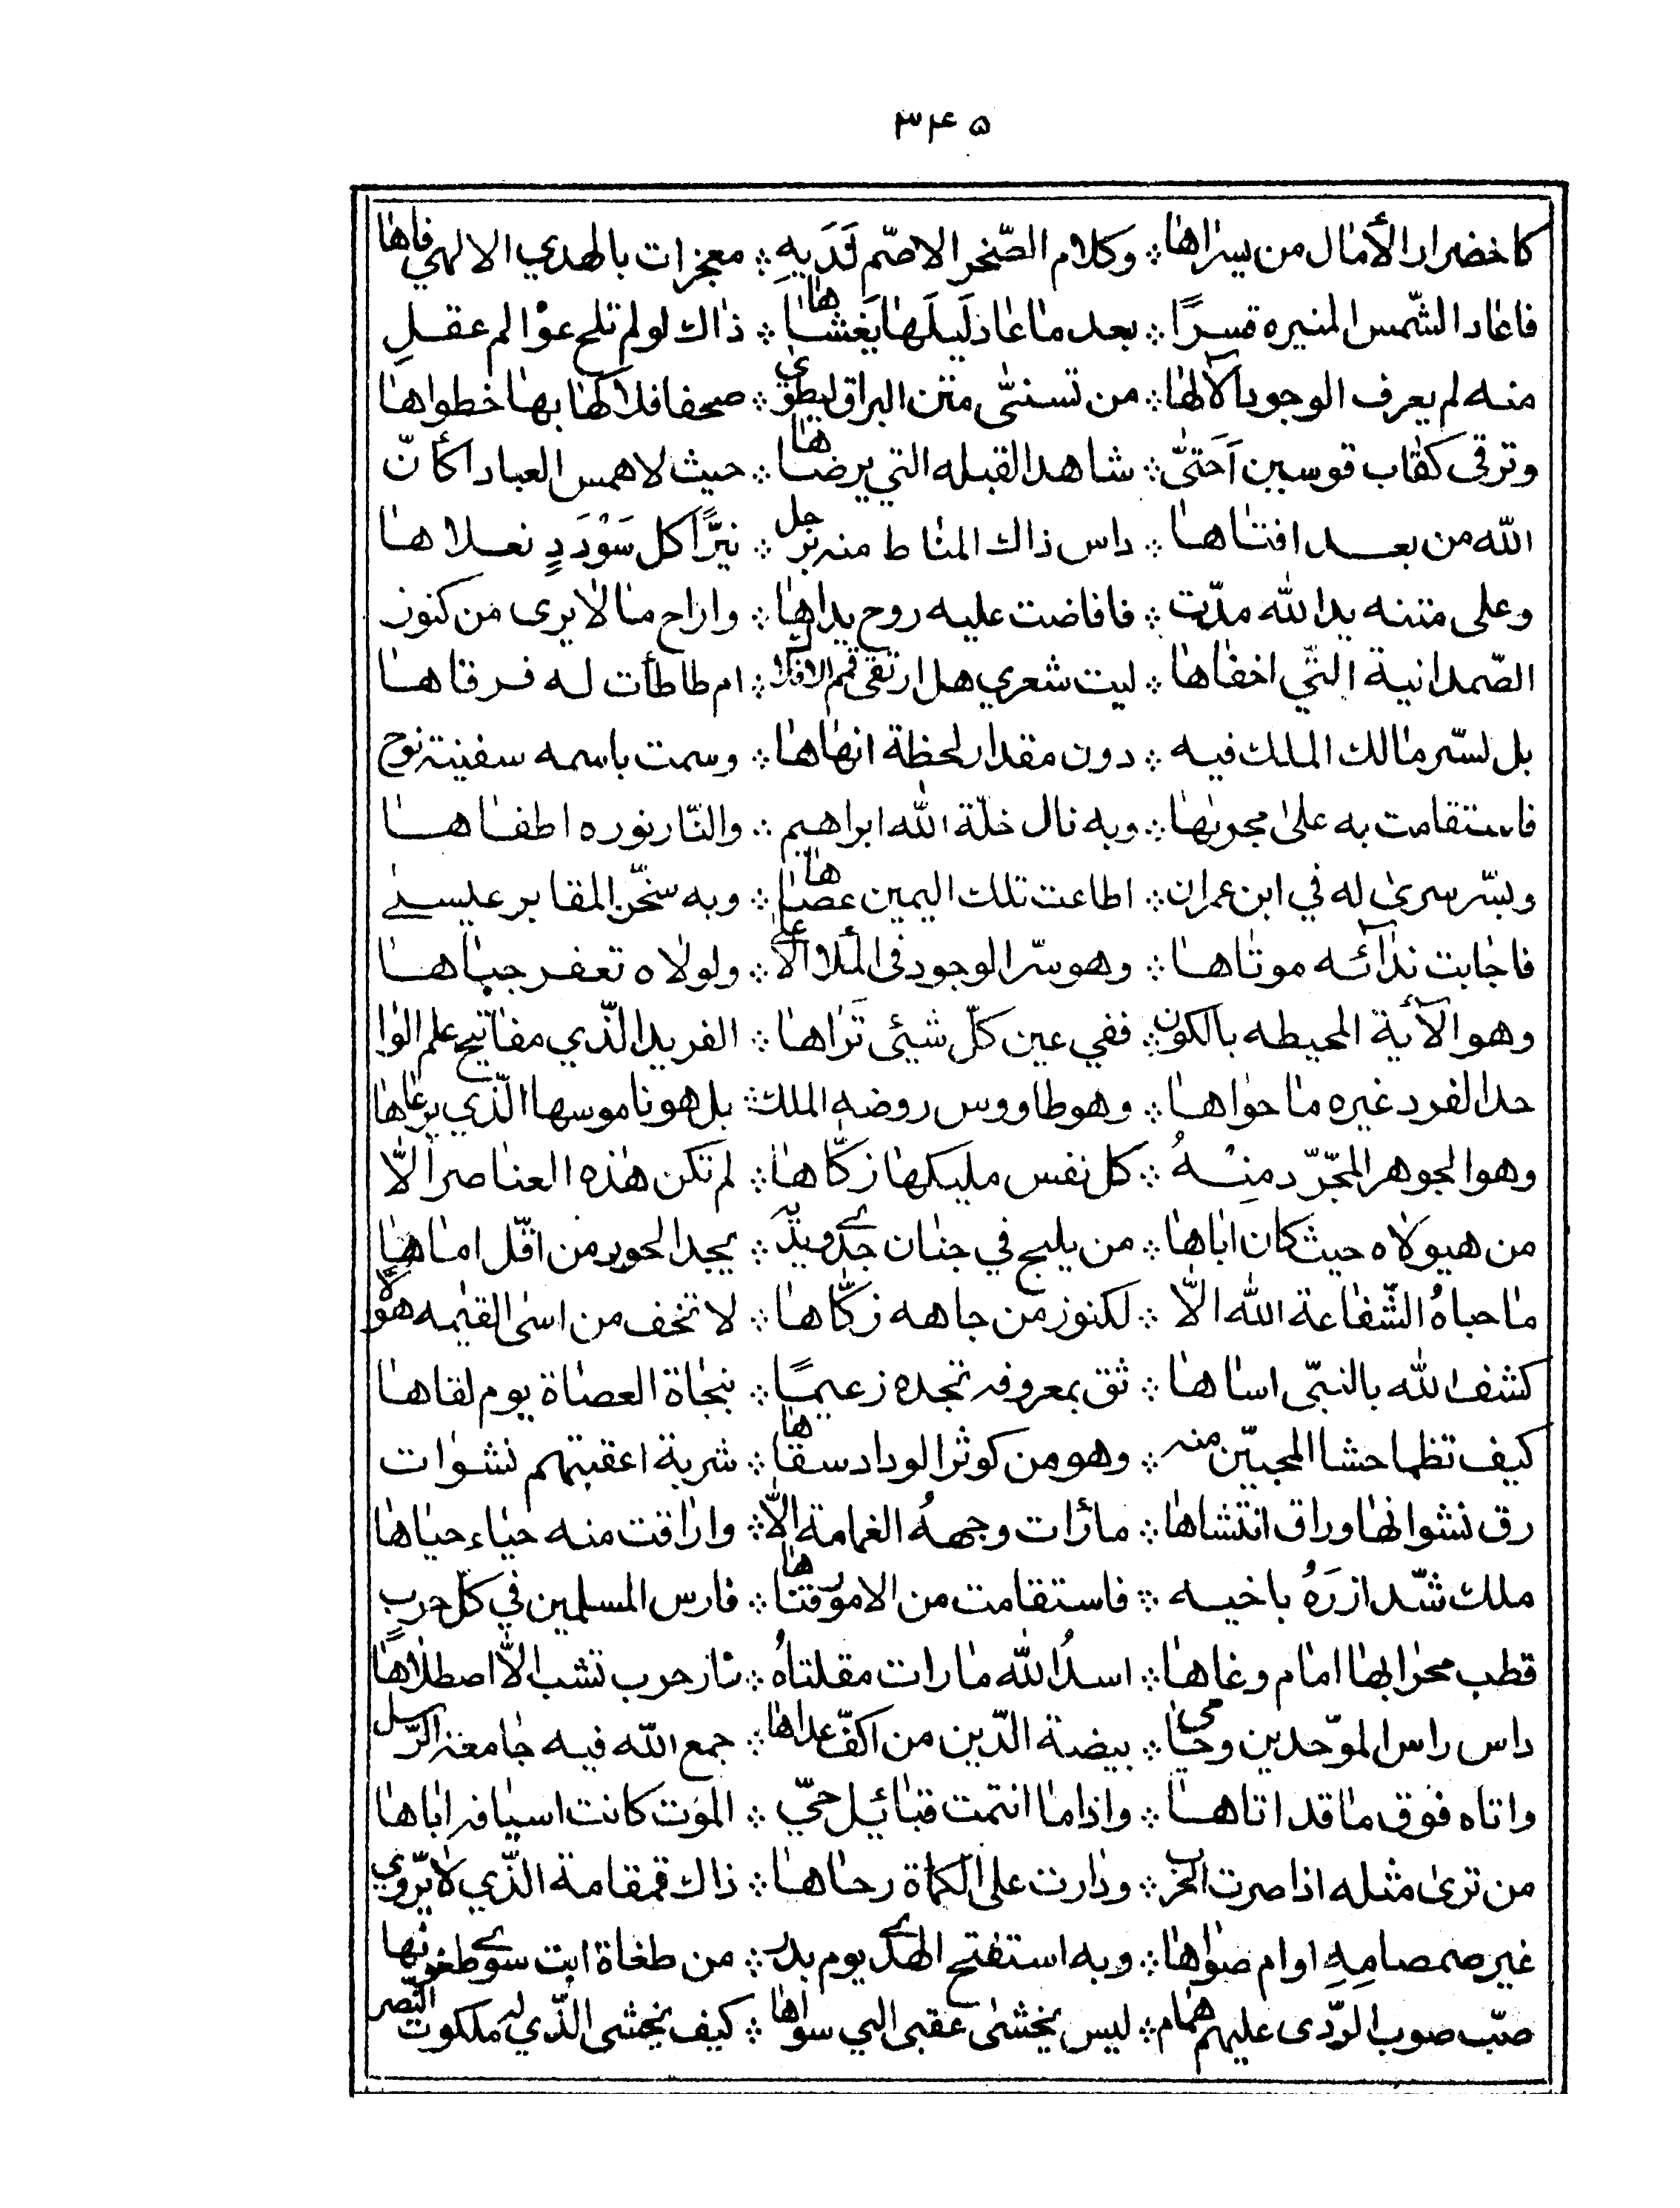 ۳۴۵
كاخضرار الأمال من يسراها ∴ وكلام الصّخر الاصّم لَدَيهِ ∴ معجزات بالهدي الالهي فاها
فاعاد الشّمس المنيره قسرًا ∴ بعد ما عاد لَيلَها يَغشاها ∴ ذاك لو لم تلح عوالم عقلِ
منه لم يعرف الوجود الالها ∴ من تسنىّ متن البراق ليطوى ∴ صحفا فلاكها بها خطواها
وترقى كقاب قوسين اَحَتىّ ∴ شاهد القبله التي يرضاها ∴ حيث لا همس العباد كأنّ
الله من بعد افتاها ∴ داس ذاك المناط منه برجل ∴ نيّرًا كل سَوْدَدٍ نعلاها
وعلى متنه يد الله مدّت ∴ فافاضت عليه روح يداها ∴ واراح منا لايرى من كنوز
الصّمدانية التّي اخفاها ∴ ليت شعري هل ارتقى قمم الافلاك ∴ ام طاطأت له فرقاها
بل لسّر مالك الملك فيه ∴ دون مقدار لحظة انهاها ∴ وسمت باسمه سفينة نوح
فاستقامت به على مجريها ∴ وبه نال خلّة الله ابراهيم ∴ والنّار نوره اطفاها
وبسّر سرى له في ابن عمران ∴ اطاعت تلك اليمين عصاها ∴ وبه سخّر المقابر عيسى
فاجابت ندآئه موتاها ∴ وهو سّر الوجود فى الملأ الأعلى ∴ ولولاه تعفر جباها
وهو الآية المحيطه بالكون ∴ ففي عين كلّ شيئى تَراها ∴ الفريد الّذي مفاتيح علم الوا
حد الفرد غيره ما حواها ∴ وهو طاووس روضه الملك ∴ بل هو ناموسها الّذي يرعاها
وهو الجوهر المجرّد مِنْهُ ∴ كل نفس مليكها زكّاها ∴ لم تكن هذه العناصر الّا
من هيولاه حيث كان اباها ∴ من يلج في جنان جدوى يديه ∴ يجد الحور من اقّل اماها
ما حباهُ الشّفاعة الله الّا ∴ لكنوز من جاهه زكّاها ∴ لا تخف من اسى القيمه هولًا
كشف الله بالنبّى اساها ∴ ثق بمعروفه تجده زعيمًا ∴ بنجاة العصاة يوم لقاها
كيف تظما حشا المحبيّن منه ∴ وهو من كوثر الوداد سقاها ∴ شربة اعقبتهم نشوات
رق نشوانها وراق انتشاها ∴ ما رأت وجههُ الغمامة الّا ∴ واراقت منه حياء حياها
ملك شّد ازرَهُ باخيه ∴ فاستقامت من الامور قناها ∴ فارس المسلمين في كلّ حرب
قطب محرابها امام وغاها ∴ اسدُ الله ما رات مقلتاهُ ∴ نار حرب تشب الّا اصطلاها
داس راس الموّحدين وحامى ∴ بيضة الدّين من اكفّ عداها ∴ جمع الله فيه جامعة الرّسل
واتاه فوق ما قد اتاها ∴ واذا ما انتمت قبائيل حيّ ∴ الموَت كانت اسيافه اباها
من ترى مثله اذا صرت الحرب ∴ ودارت على الكماة رحاها ∴ ذاك قمقامة الذّي لايرّوي
غير صمصامِهِ اوام صواها ∴ وبه استفتح الهدى يوم بدر ∴ من طغاة ابت سوى طغونها
صبّ صوب الرّدى عليهم همام ∴ ليس يخشى عقبى الي سواها ∴ كيف يخشى الذّي له ملكوت النّصر